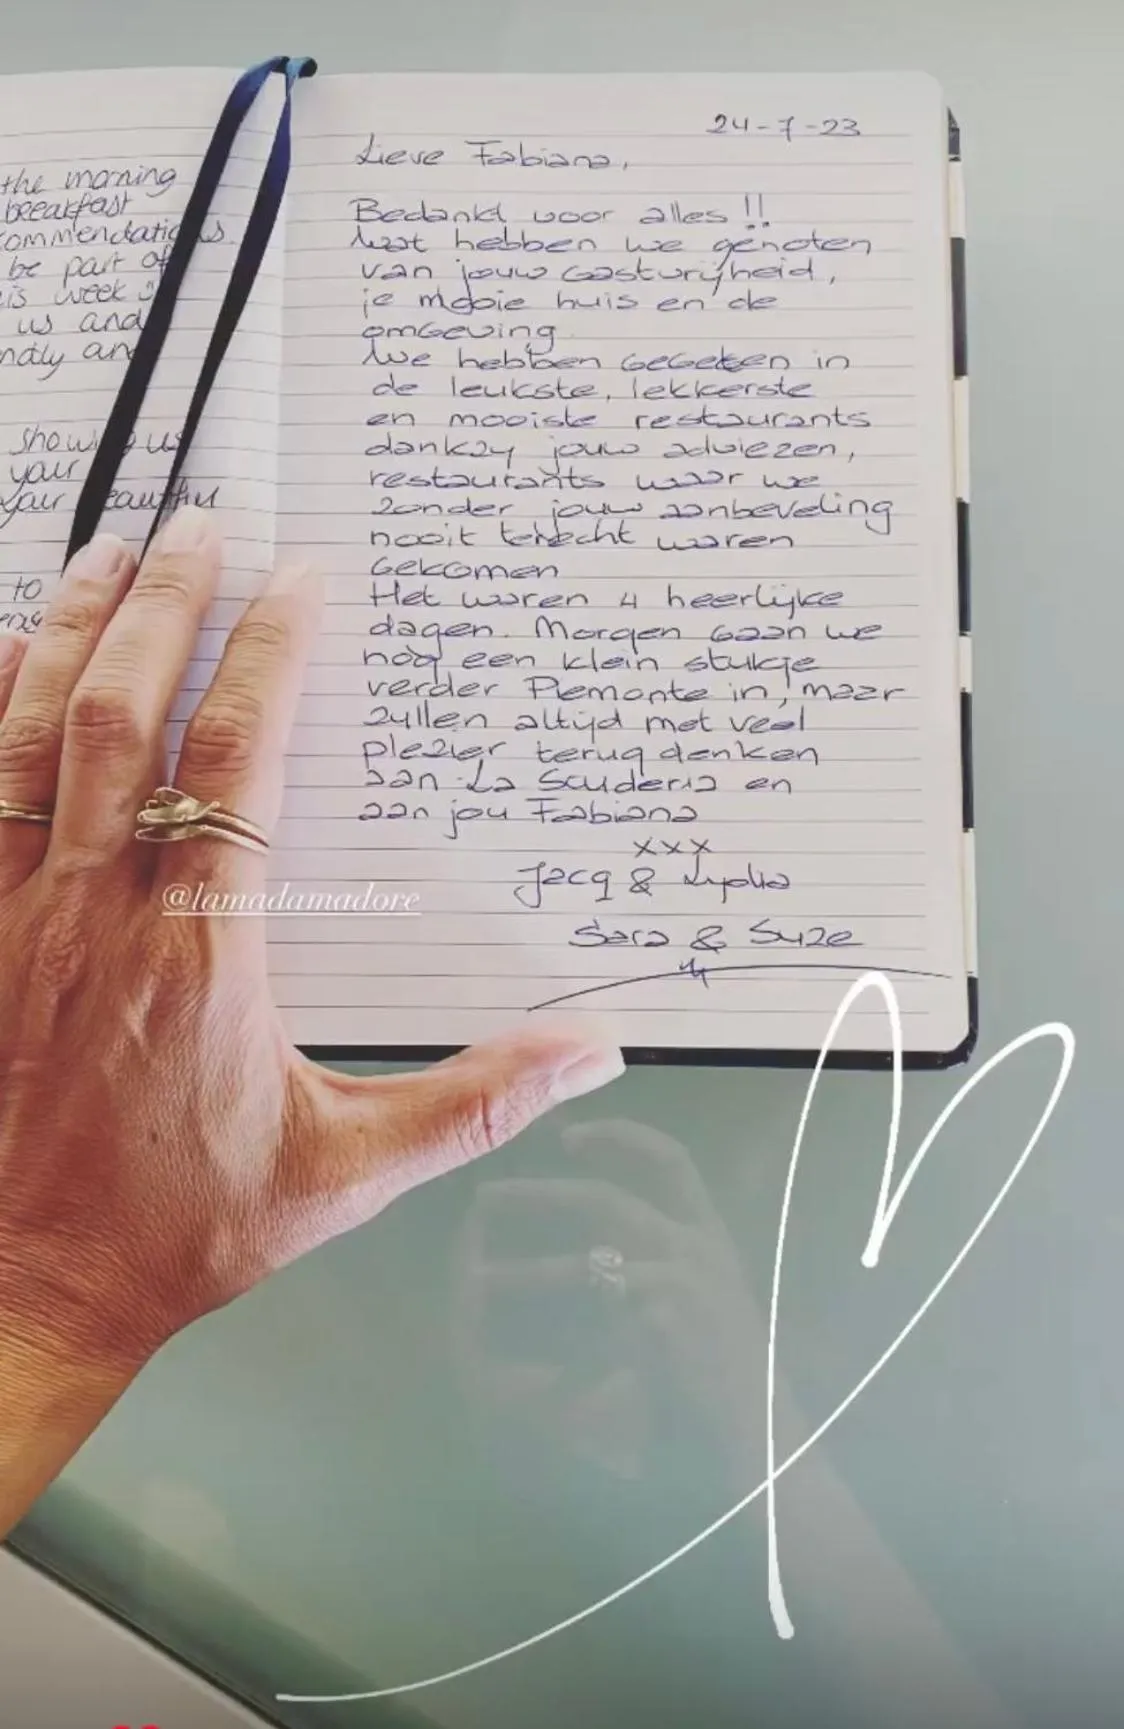 the morning
breakfast
commendations.
be part of
is week :)
us and
ndly and
showing us
your
your beautiful
to
24-7-23
Lieve Fabiana,
Bedankt voor alles!!
Wat hebben we genoten
van jouw Gastvrijheid,
je mooie huis en de
omgeving.
We hebben gegeten in
de leukste, lekkerste
en mooiste restaurants
dankzij jouw adviezen,
restaurants waar we
zonder jouw aanbeveling
nooit terecht waren
gekomen
Het waren 4 heerlijke
dagen. Morgen gaan we
nog een klein stukje
verder Piemonte in, maar
zullen altijd met veel
plezier terug denken
aan La Scuderia en
aan jou Fabiana
xxx
Jacq & Lydia
Sara & Suze
@lamadamadore